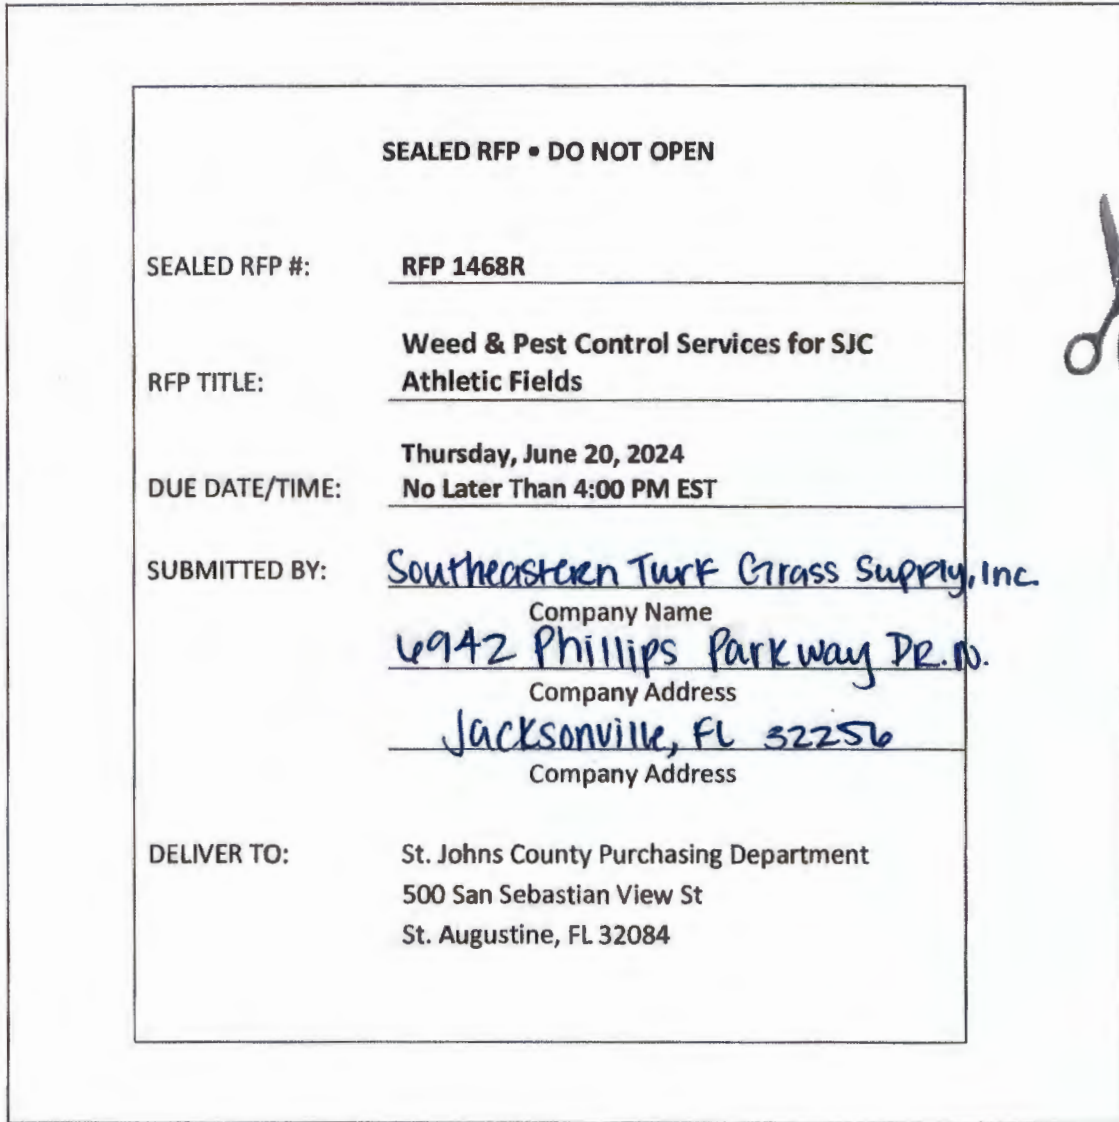 SEALED RFP • DO NOT OPEN
SEALED RFP #: RFP 1468R
Weed & Pest Control Services for SJC
RFP TITLE: Athletic Fields
Thursday, June 20, 2024
DUE DATE/TIME: No Later Than 4:00 PM EST
SUBMITTED BY: Southeastern Turf Grass Supply, Inc.
Company Name
6942 Phillips Parkway DR. N.
Company Address
Jacksonville, FL 32256
Company Address
DELIVER TO: St. Johns County Purchasing Department
500 San Sebastian View St
St. Augustine, FL 32084